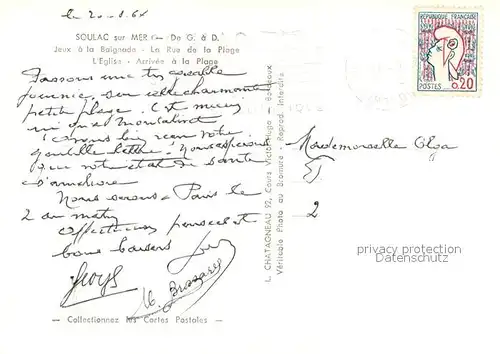 le 20-8-64
SOULAC sur MER — De G. à D.
Jeux à la Baignade - La Rue de la Plage
L'Eglise - Arrivée à la Plage
Passons une très agréable
journée, sur cette charmante
petite plage. C'est mieux
qu'a Montalivet
bien reçu votre
gentille lettre. Nous espérons
que votre état de santé
s'améliore
Nous serons à Paris le
2 au matin
Affectueuses pensées et
bons baisers
— Collectionnez les Cartes Postales —
L. CHATAGNEAU 92, Cours Victor-Hugo - Bordeaux
Véritable Photo au Bromure - Reprod. Interdite
REPUBLIQUE FRANÇAISE
POSTES 0,20
Mademoiselle Olga
2
privacy protection
Datenschutz